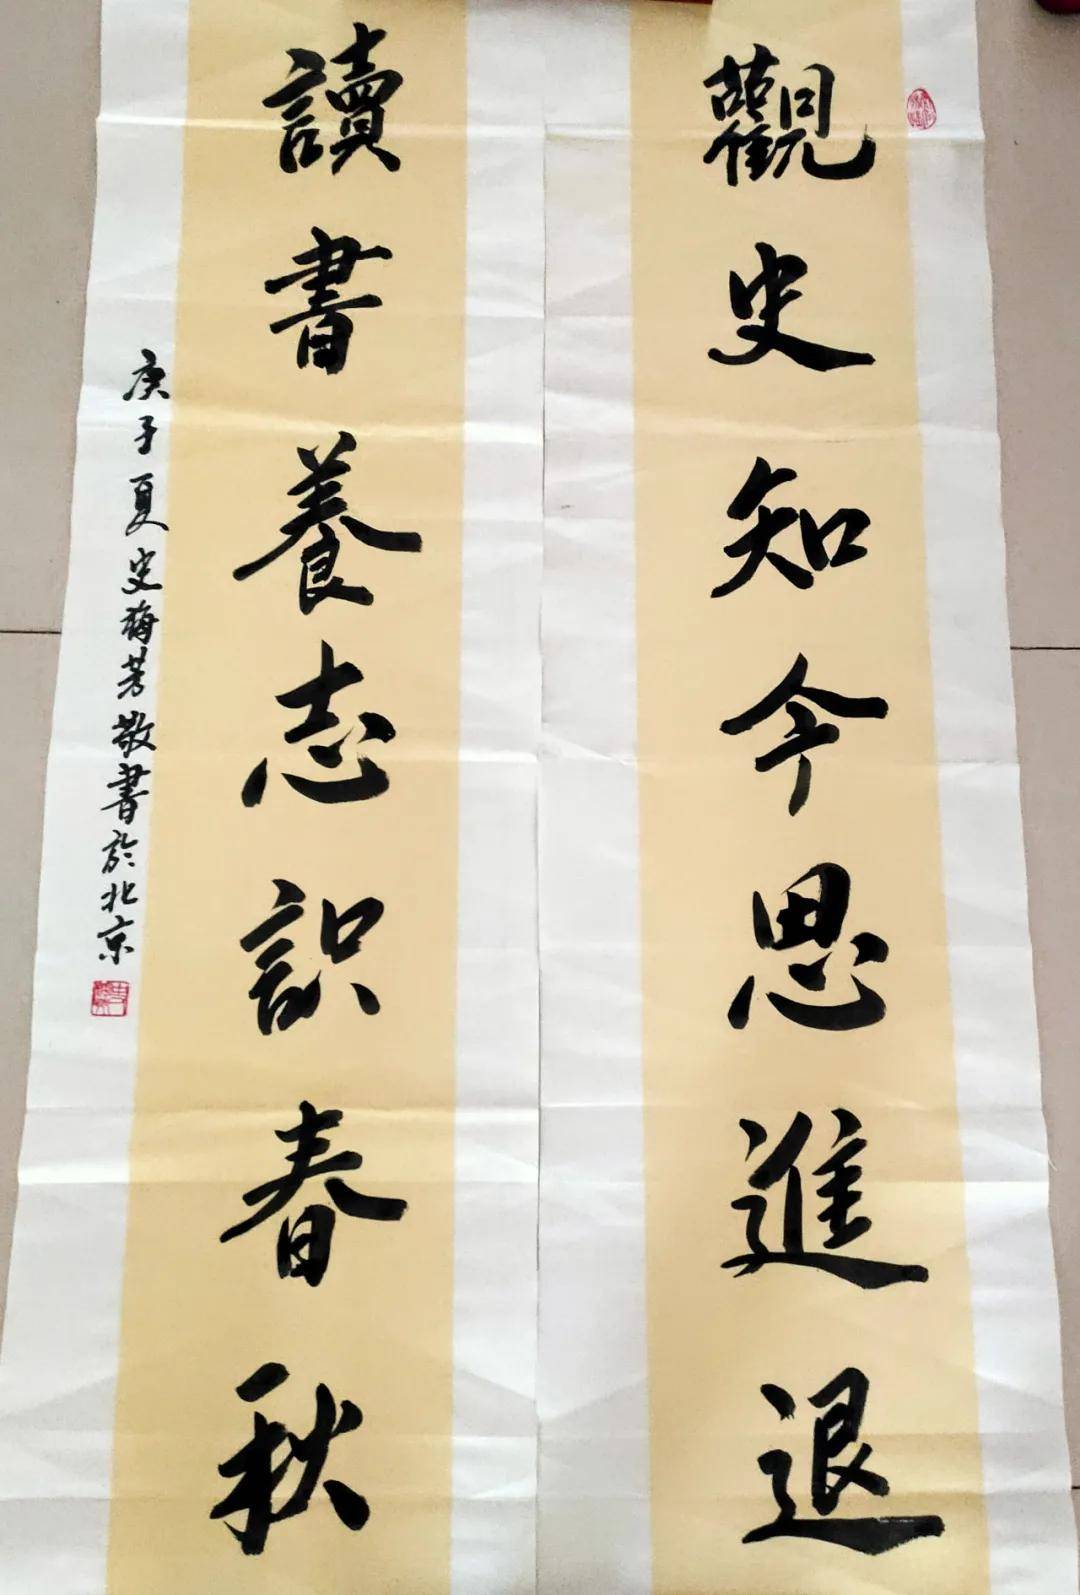 觀史知今思進退
讀書養志識春秋
庚子夏史梅芳敬書於北京